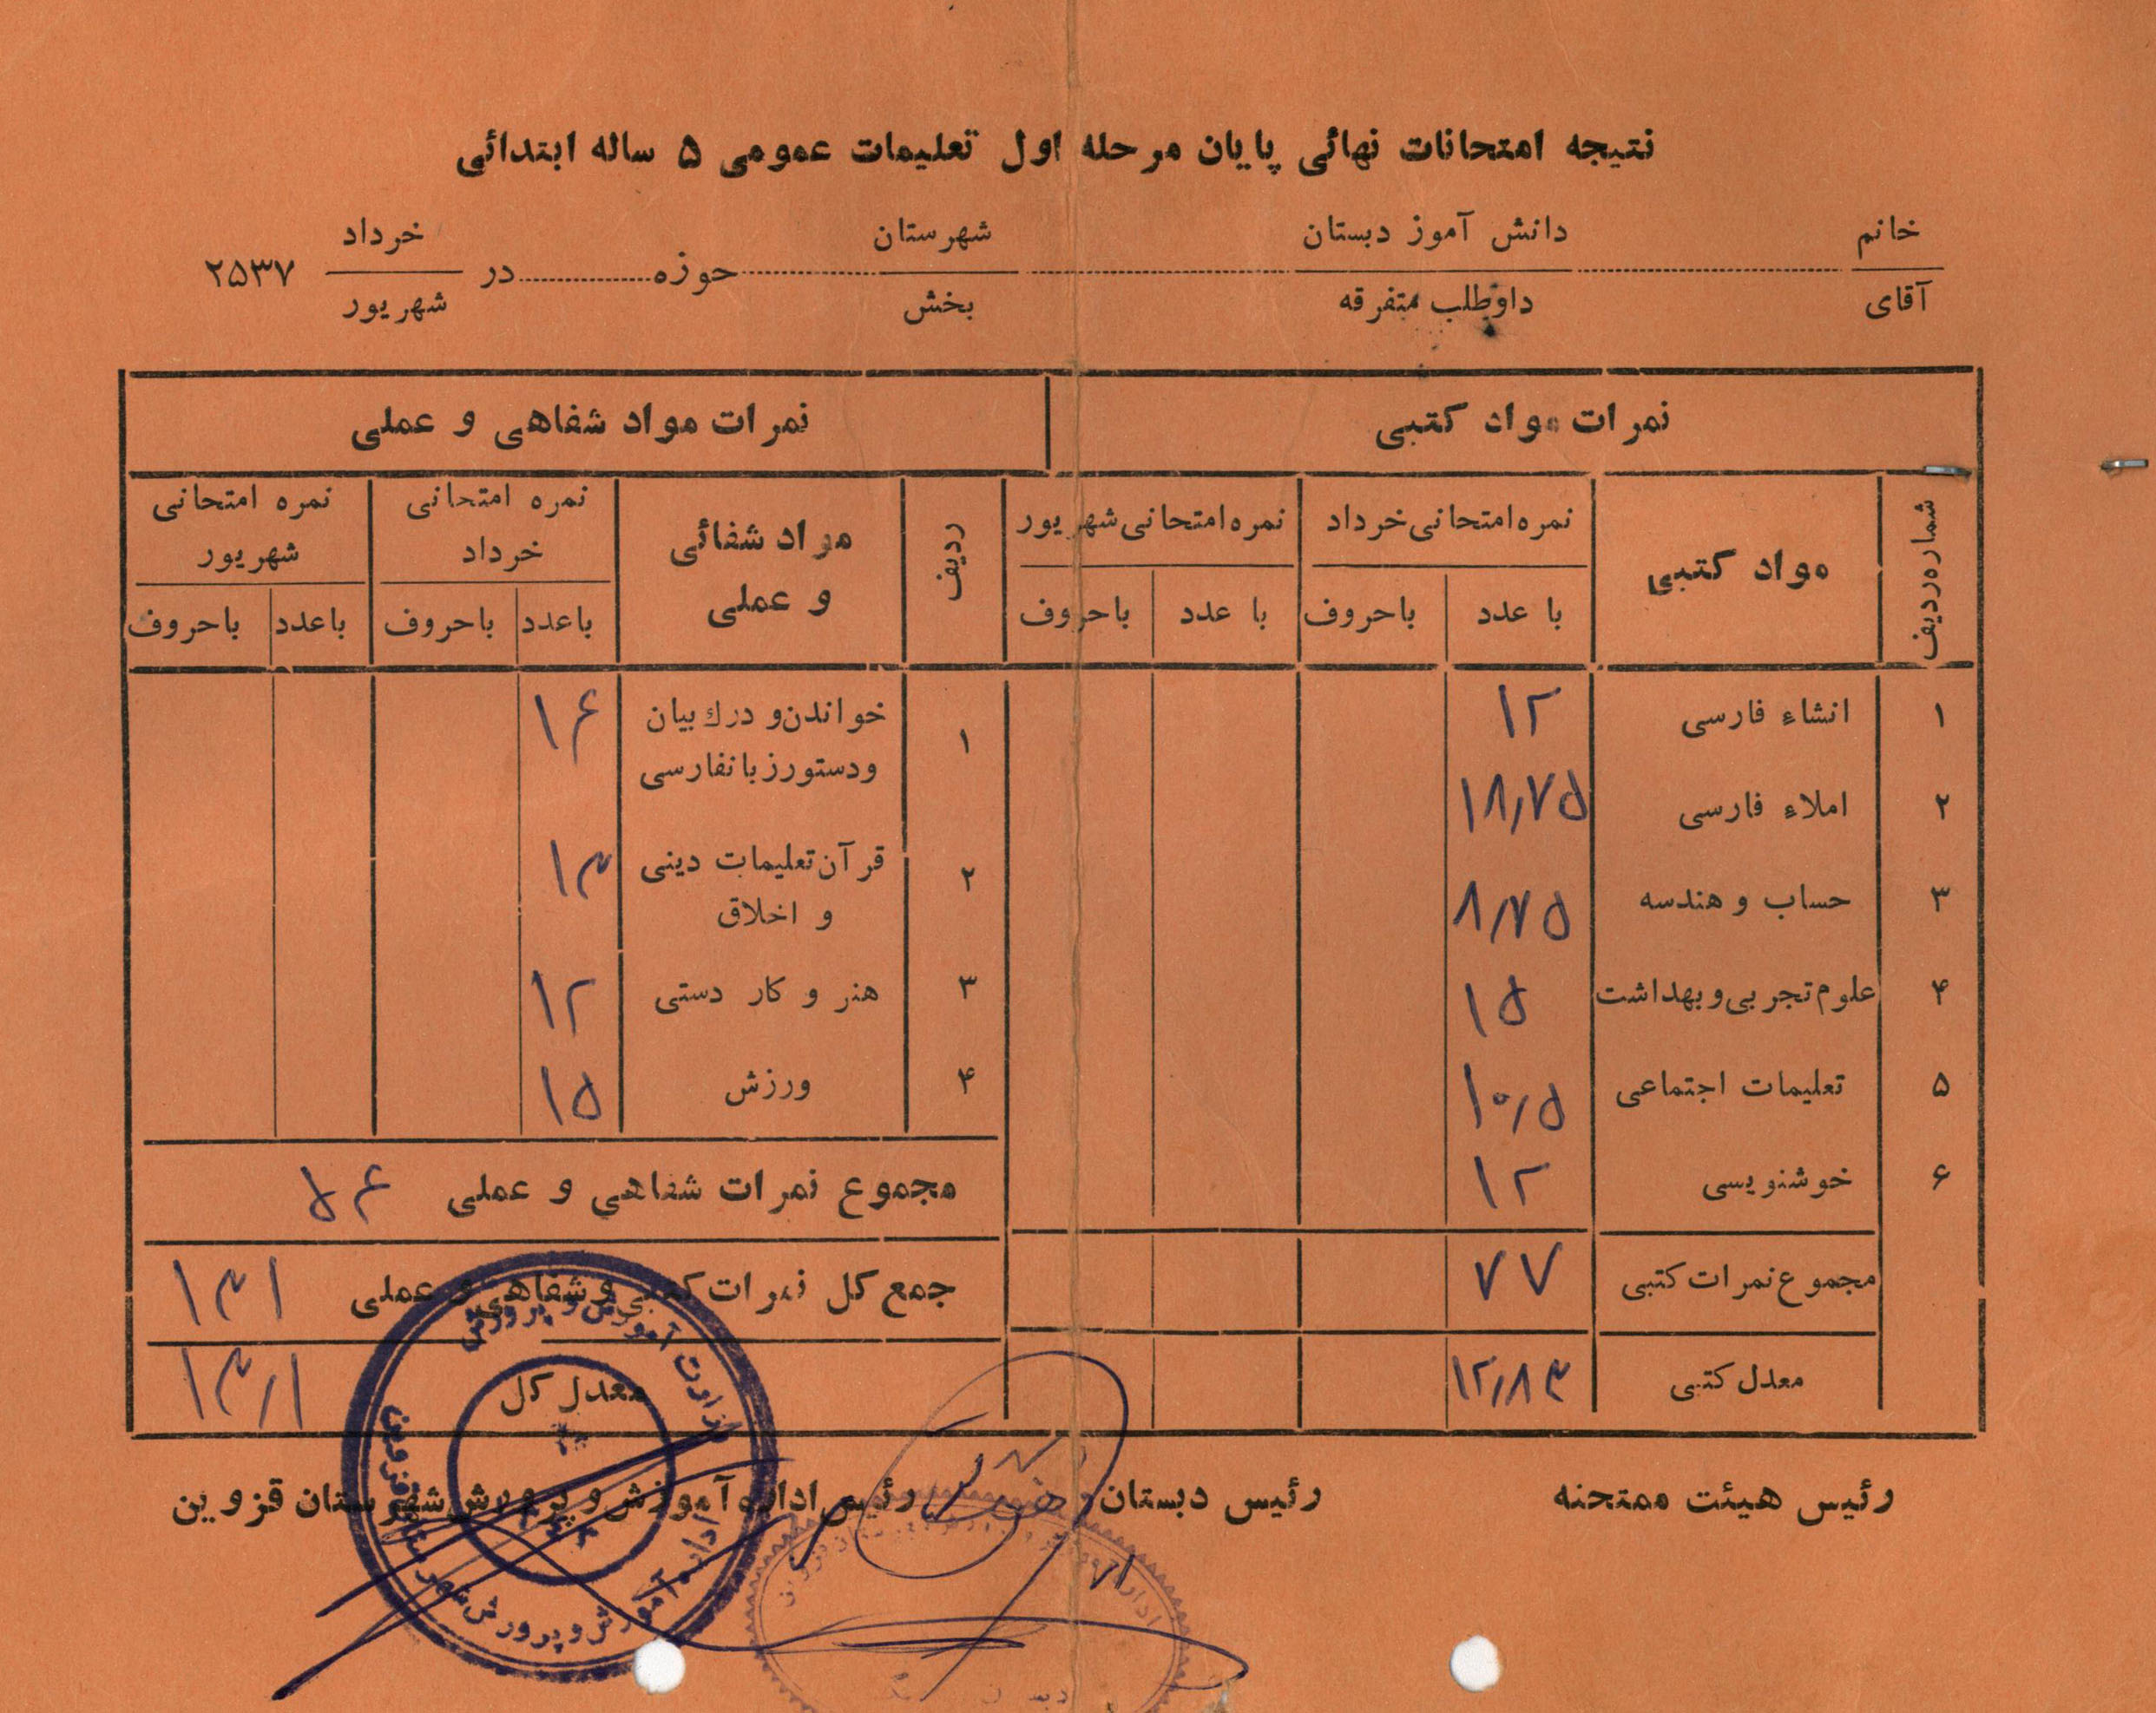 نتیجه امتحانات نهائی پایان مرحله اول تعلیمات عمومی ۵ ساله ابتدائی
خانم دانش آموز دبستان شهرستان خرداد
حوزه در ۲۵۳۷
آقای داوطلب متفرقه بخش شهریور
نمرات مواد کتبی نمرات مواد شفاهی و عملی
شماره ردیف مواد کتبی نمره امتحانی خرداد نمره امتحانی شهریور ردیف مواد شفائی و عملی نمره امتحانی خرداد نمره امتحانی شهریور
با عدد باحروف با عدد باحروف باعدد باحروف باعدد باحروف
۱ انشاء فارسی ۱۲
۲ املاء فارسی ۱۸٫۷۵
۳ حساب و هندسه ۸٫۷۵
۴ علوم تجربی و بهداشت ۱۵
۵ تعلیمات اجتماعی ۱۰٫۵
۶ خوشنویسی ۱۲
مجموع نمرات کتبی ۷۷
معدل کتبی ۱۲٫۸۳
۱ خواندن و درك بیان ۱۴
ودستورزبانفارسی
۲ قرآن تعلیمات دینی ۱۳
و اخلاق
۳ هنر و کار دستی ۱۲
۴ ورزش ۱۵
مجموع نمرات شفاهی و عملی ۵۴
جمع کل نمرات کتبی و شفاهی و عملی ۱۳۱
معدل کل ۱۳٫۱
رئیس هیئت ممتحنه رئیس دبستان رئیس اداره آموزش و پرورش شهرستان قزوین
وزارت آموزش و پرورش
اداره آموزش و پرورش شهرستان قزوین